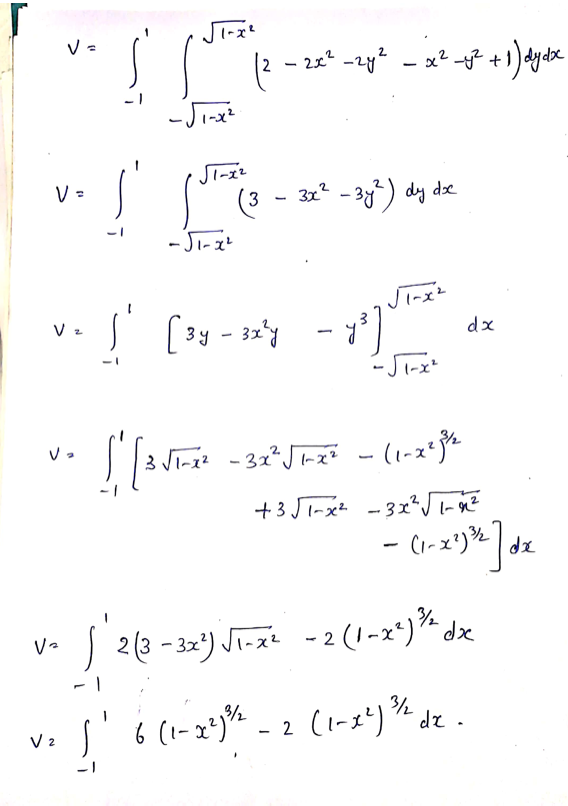 V = ∫_{-1}^{1} ∫_{-√(1-x²)}^{√(1-x²)} (2 - 2x² - 2y² - x² - y² + 1) dy dx
V = ∫_{-1}^{1} ∫_{-√(1-x²)}^{√(1-x²)} (3 - 3x² - 3y²) dy dx
V = ∫_{-1}^{1} [3y - 3x²y - y³]_{-√(1-x²)}^{√(1-x²)} dx
V = ∫_{-1}^{1} [3√(1-x²) - 3x²√(1-x²) - (1-x²)^{3/2}
+ 3√(1-x²) - 3x²√(1-x²)
- (1-x²)^{3/2}] dx
V = ∫_{-1}^{1} 2(3 - 3x²)√(1-x²) - 2(1-x²)^{3/2} dx
V = ∫_{-1}^{1} 6(1-x²)^{3/2} - 2(1-x²)^{3/2} dx.